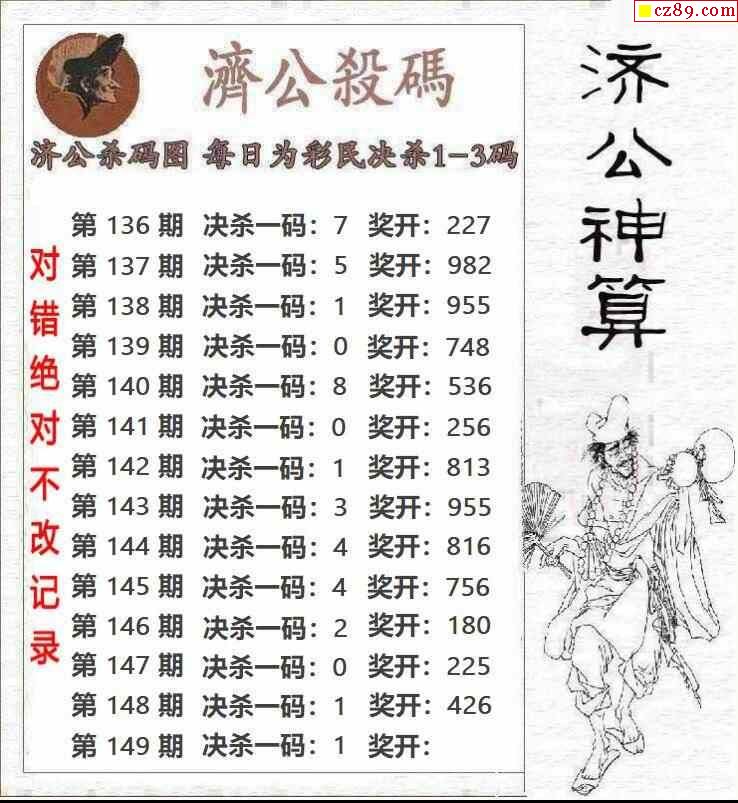 cz89.com
濟公殺碼
济公杀码图 每日为彩民决杀1-3码
第 136 期 决杀一码：7 奖开：227
第 137 期 决杀一码：5 奖开：982
第 138 期 决杀一码：1 奖开：955
第 139 期 决杀一码：0 奖开：748
第 140 期 决杀一码：8 奖开：536
第 141 期 决杀一码：0 奖开：256
第 142 期 决杀一码：1 奖开：813
第 143 期 决杀一码：3 奖开：955
第 144 期 决杀一码：4 奖开：816
第 145 期 决杀一码：4 奖开：756
第 146 期 决杀一码：2 奖开：180
第 147 期 决杀一码：0 奖开：225
第 148 期 决杀一码：1 奖开：426
第 149 期 决杀一码：1 奖开：
对错绝对不改记录
济公神算